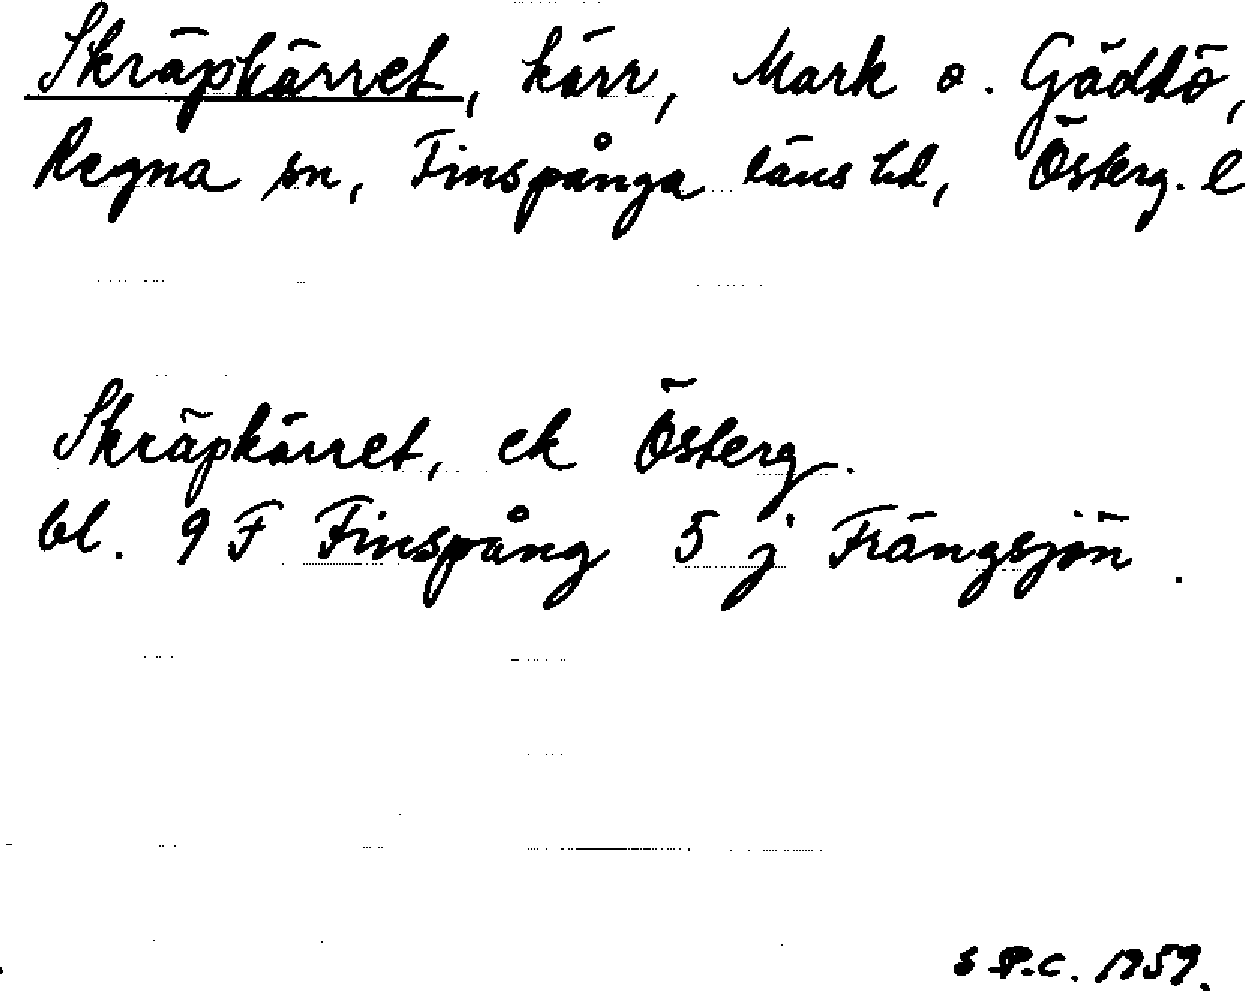 Skräpkärret, kärr, Mark o. Gäddtö,
Regna sn, Finspånga läns hd, Österg. l
Skräpkärret, ek Österg.
bl. 9 F Finspång 5 j Frängsjön.
S P.C. 1959.